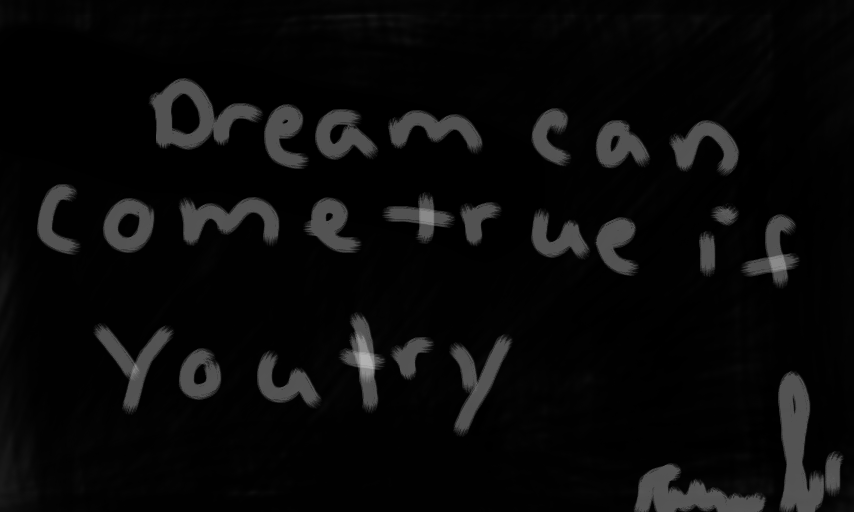 Dream can
come true if
You try